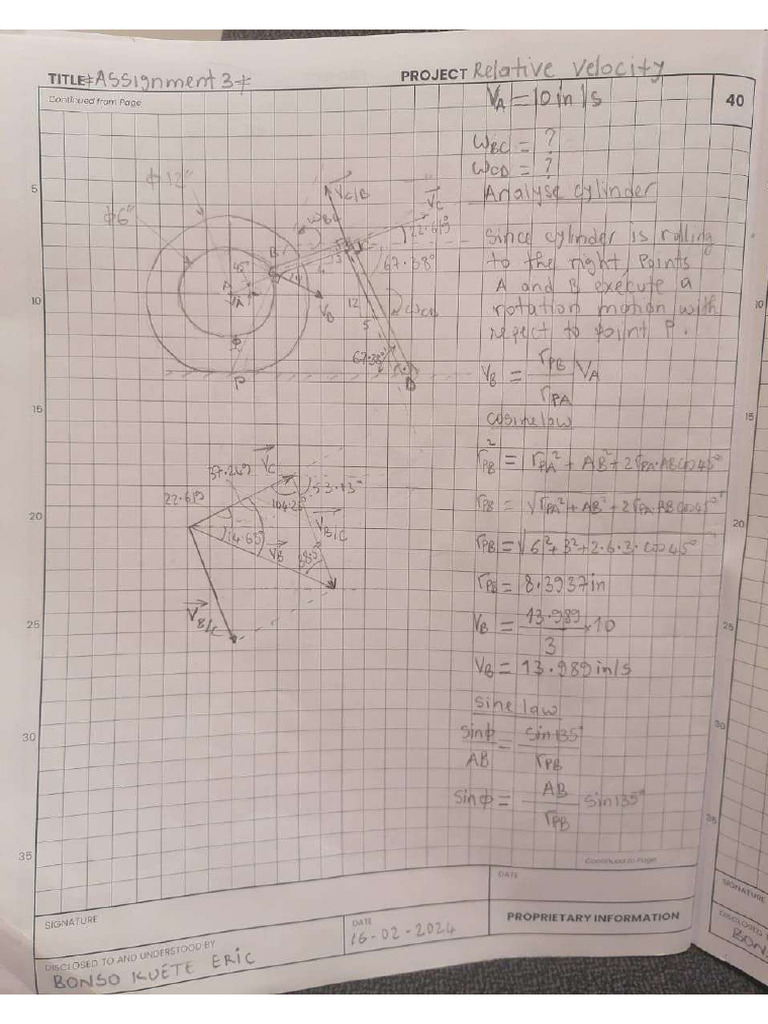 TITLE *Assignment 3*
PROJECT Relative Velocity
Continued from Page
40
VA = 10 in/s
ωBC = ?
ωCD = ?
Analyse cylinder
since cylinder is rolling
to the right, points
A and B execute a
rotation motion with
repect to point P.
VB = rPB/rPA VA
cosine law
rPB² = rPA² + AB² + 2rPA·ABcos45°
rPB = √rPA² + AB² + 2rPA·ABcos45°
rPB = √6² + 3² + 2·6·3·cos45°
rPB = 8.3937in
VB = 13.989/3 × 10
VB = 13.989 in/s
sine law
sinϕ/AB = sin135°/rPB
sinϕ = AB/rPB sin135°
ϕ12"
ϕ6"
VC/B
VC
ωBC
22.619
67.38°
B
45°
A
VA
VB
12
5
ωCD
67.38°
ϕ
P
D
37.249
VC
53.13°
22.619
104.25°
VB/C
14.63°
VB
VB/C
5
10
15
20
25
30
35
15
20
25
30
35
Continued to Page
SIGNATURE
DATE
16-02-2024
DATE
PROPRIETARY INFORMATION
DISCLOSED TO AND UNDERSTOOD BY
BONSO KUETE ERIC
SIGNATURE